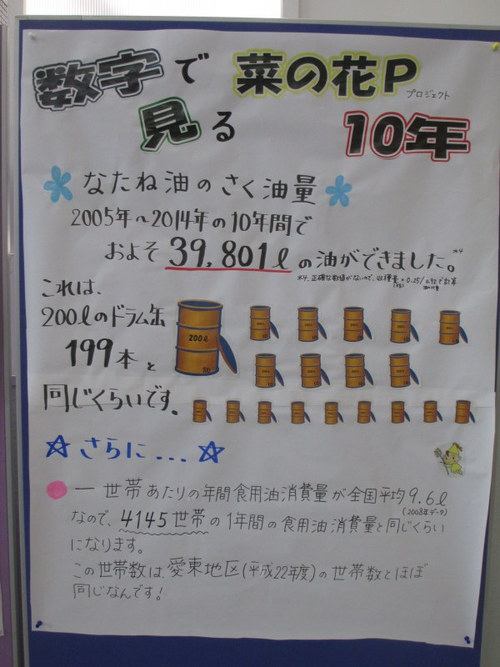 数字で 菜の花P
プロジェクト
見る 10年
なたね油のさく油量
2005年~2014年の10年間で
およそ 39,801ℓ の油ができました。
これは、
200ℓのドラム缶
199本と
同じくらいです。
200ℓ
☆さらに...☆
一世帯あたりの年間食用油消費量が全国平均9.6ℓ
(2008年データ)
なので、4145世帯の1年間の食用油消費量と同じくらい
になります。
この世帯数は、愛東地区(平成22年度)の世帯数とほぼ
同じなんです!